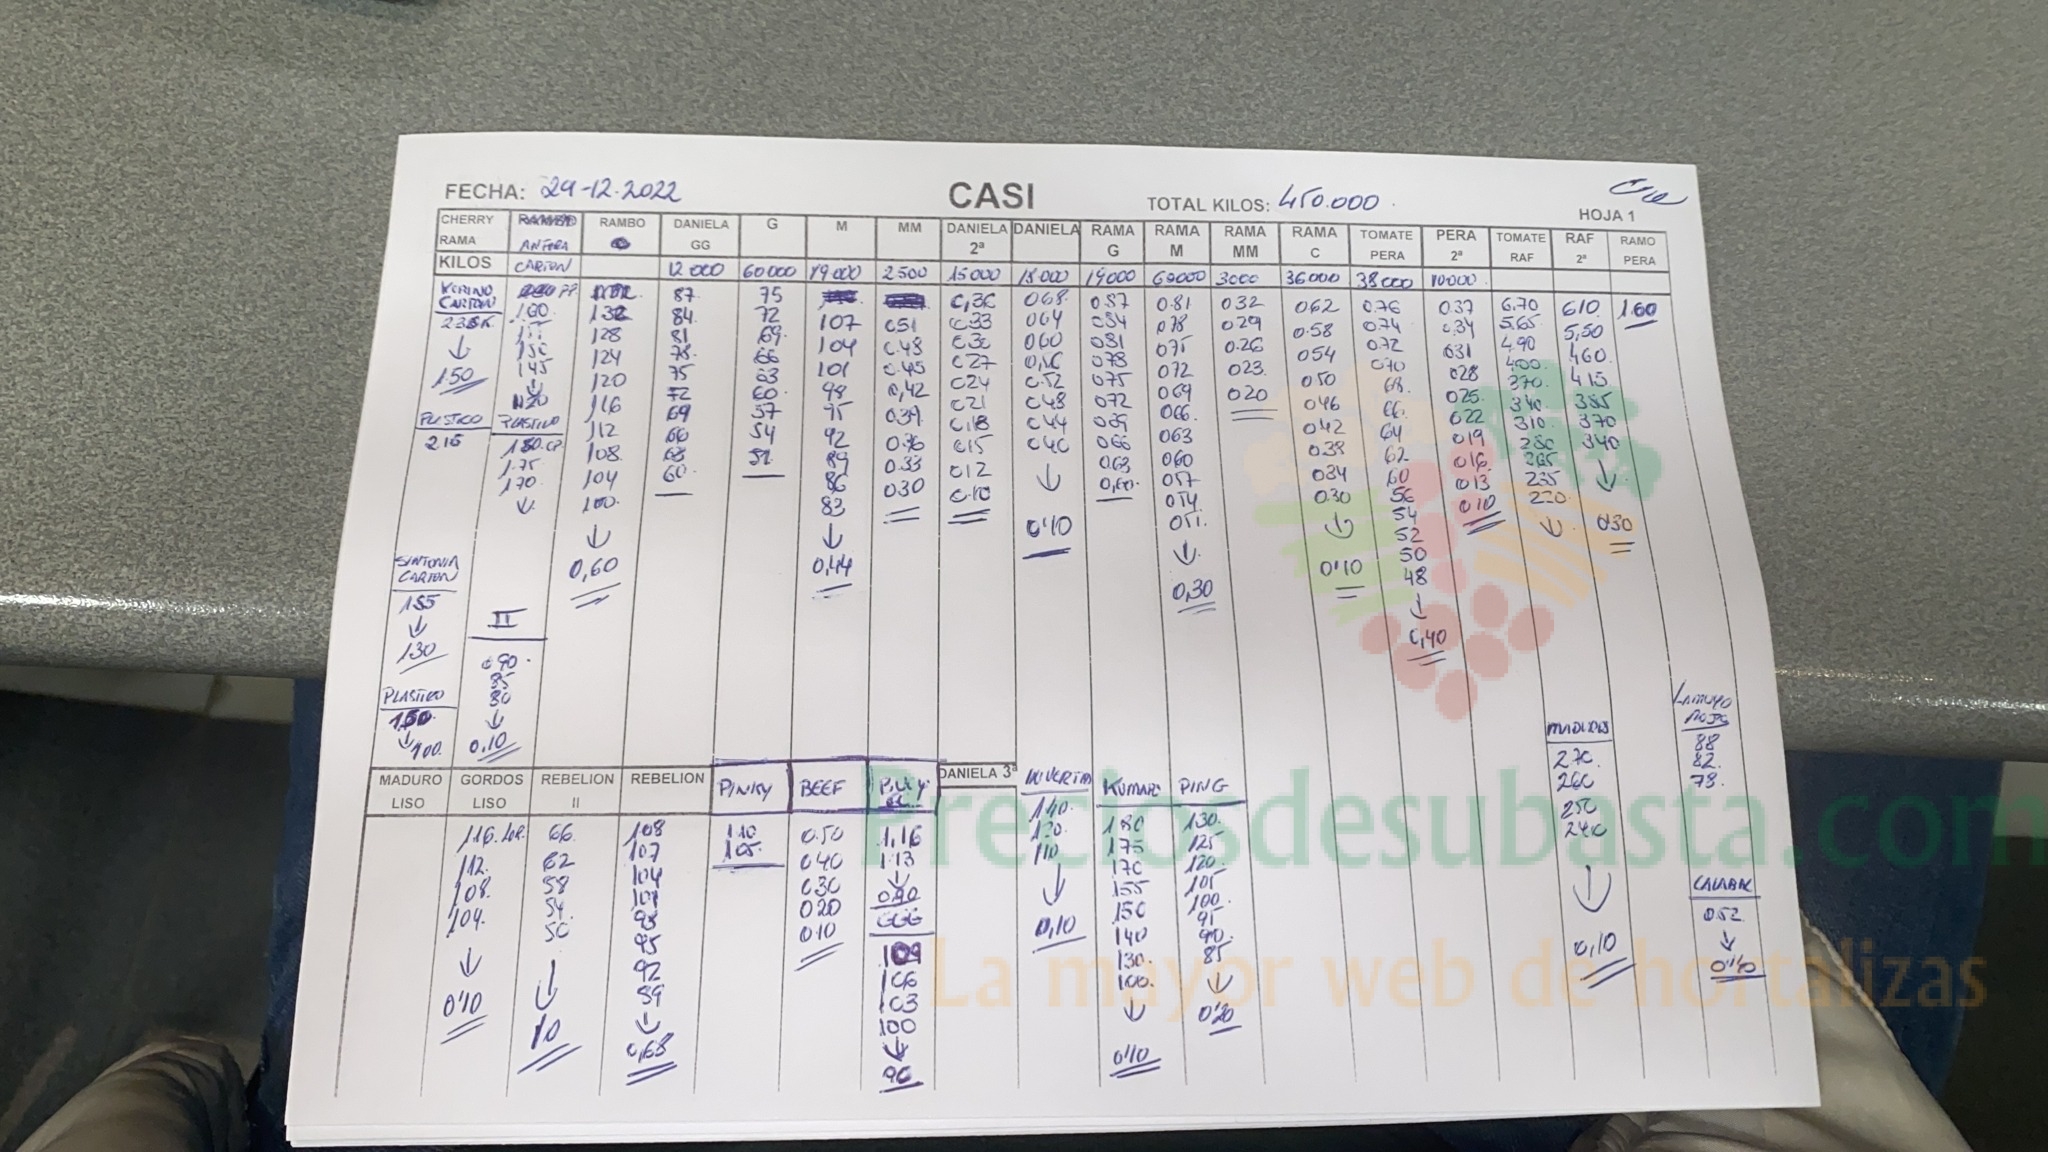 FECHA: 29-12-2022 CASI TOTAL KILOS: 450.000
HOJA 1
CHERRY RAMA
ANFORA CARTON
RAMBO
DANIELA GG
G
M
MM
DANIELA 2ª
DANIELA
RAMA G
RAMA M
RAMA MM
RAMA C
TOMATE PERA
PERA 2ª
TOMATE RAF
RAF 2ª
RAMO PERA
KILOS 12000 60000 19000 2500 15000 18000 19000 60000 3000 36000 38000 10000
CARTON
↓
150
PLASTICO
215
SINTONIA
CARTON
185
↓
130
PLASTICO
150
↓
100
160
150
145
↓
120
PLASTICO
180
175
170
↓
II
090
85
80
↓
0,10
132
128
124
120
116
112
108
104
100
↓
0,60
87
84
81
78
75
72
69
66
63
60
75
72
69
66
63
60
57
54
51
107
104
101
98
95
92
89
86
83
↓
0,44
051
0.48
0.45
0,42
039
036
033
030
0,36
033
030
027
024
021
018
015
012
010
068
064
060
056
052
048
044
040
↓
0'10
087
084
081
078
075
072
069
066
063
0,60
0.81
078
075
072
069
066
063
060
057
054
051
↓
0,30
032
029
026
023
020
062
0.58
054
050
046
042
038
034
030
↓
0'10
0.76
0.74
0.72
070
68
66
64
62
60
56
54
52
50
48
↓
0,40
037
034
031
028
025
022
019
016
013
010
6.70
5.65
4.90
400
370
340
310
280
265
235
220
↓
610
5,50
460
415
385
370
340
↓
030
1.60
270
260
250
240
↓
0,10
LAMUYO
ROJO
88
82
78
CALABAC
052
↓
0'10
MADURO LISO
GORDOS LISO
REBELION II
REBELION
PINKY
BEEF
PINKY
DANIELA 3ª
KUMATO
PING
116
112
108
104
↓
0'10
66
62
58
54
50
↓
10
108
107
104
101
98
95
92
89
↓
0,68
110
105
0.50
040
030
020
010
1,16
1.13
↓
0.90
109
106
103
100
↓
90
140
120
110
↓
0,10
180
175
170
155
150
140
130
100
↓
0'10
130
125
120
105
100
95
90
85
↓
0'20
Preciosdesubasta.com
La mayor web de hortalizas